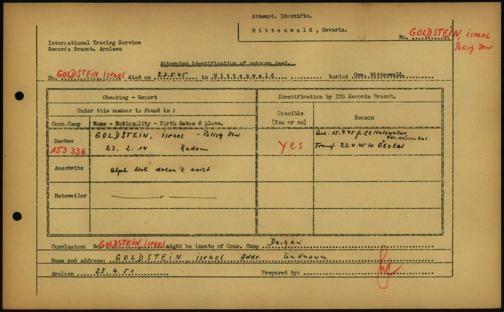 Attempt. Identific.
Mittenwald, Bavaria.
No. GOLDSTEIN, israel
Polish Jew
International Tracing Service
Records Branch, Arolsen
Attempted identification of unknown dead.
No. GOLDSTEIN israel died on 27.5.45 in Mittenwald Buried Cem. Mittenwald.
Checking - Report
Identification by ITS Records Branch.
Under this number is found in:
Traceable
(Yes or no)
Reason
Conc.Camp Name - Nationality - Birth dates & place.
Dachau
153 336
GOLDSTEIN, israel - Polish Jew
23. 2. 14 Radom
Yes
Transf. 23.4.45 to Oetztal
Auschwitz
alph. list doesn't exist
Natzweiler
Conclusions No. GOLDSTEIN israel might be inmate of Conc. Camp Dachau
Name and address: GOLDSTEIN israel Addr. unknown
Arolsen 25.4.51 Prepared by: